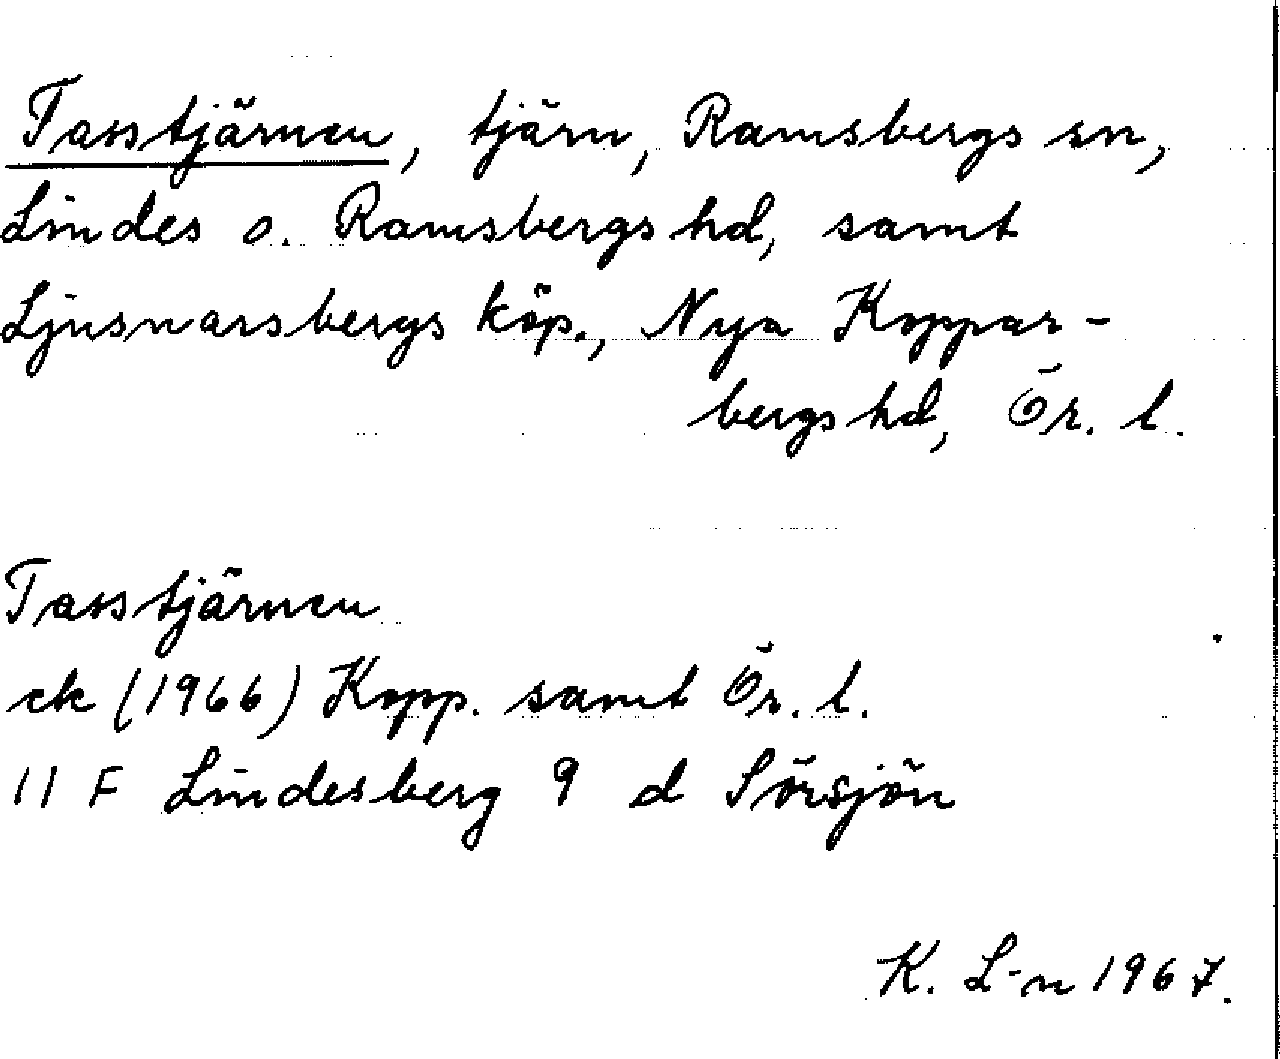 Tasstjärnen, tjärn, Ramsbergs sn,
Lindes o. Ramsbergs hd, samt
Ljusnarsbergs köp., Nya Koppar-
bergs hd, Ör. l.
Tasstjärnen
ek (1966) Kopp. samt Ör. l.
11 F Lindesberg 9 d Sörsjön
K. L-n 1967.